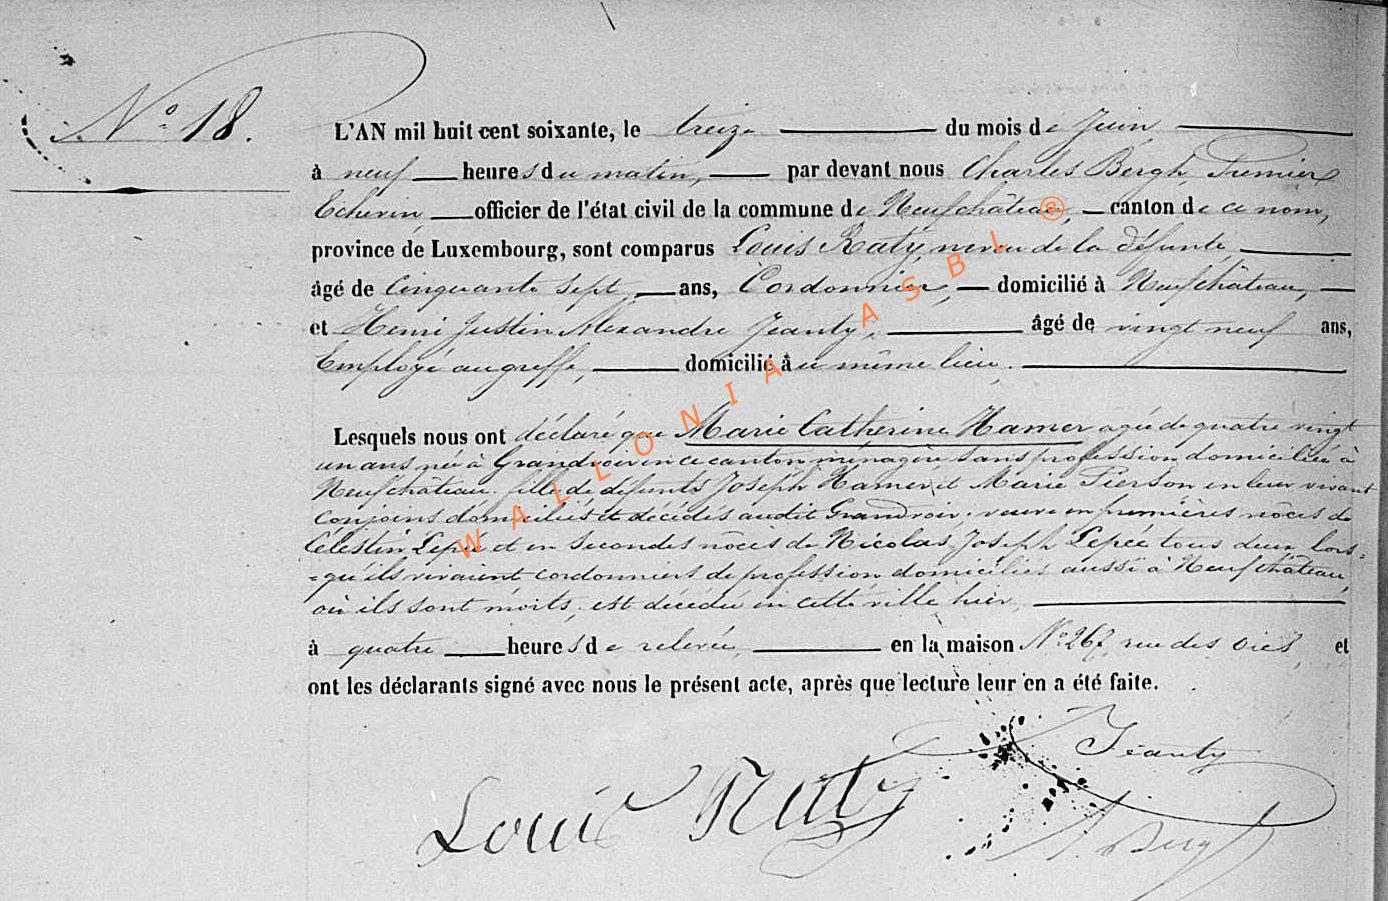 N° 18.
L'AN mil huit cent soixante, le treize du mois de Juin
à neuf heures du matin, par devant nous Charles Bergh, Premier
Echevin, officier de l'état civil de la commune de Neufchâteau, canton de ce nom,
province de Luxembourg, sont comparus Louis Raty, neveu de la défunte,
âgé de Cinquante sept, ans, Cordonnier, domicilié à Neufchâteau,
et Henri Justin Alexandre Jeanty, âgé de vingt neuf ans,
Employé au greffe, domicilié au même lieu.
Lesquels nous ont déclaré que Marie Catherine Hamer agée de quatre vingt
un ans née à Grandvoir en ce canton ménagère sans profession domiciliée à
Neufchâteau. fille de défunts Joseph Hamer et Marie Pierson en leur vivant
conjoins domiciliés et décédés audit Grandvoir; veuve en premières nôces de
Célestin Lepée et en secondes nôces de Nicolas Joseph Lepée tous deux lors=
=qu'ils vivaient cordonniers de profession domiciliés aussi à Neufchâteau,
où ils sont morts, est décédée en cette ville hier,
à quatre heures de relevée, en la maison N° 267, rue des oies, et
ont les déclarants signé avec nous le présent acte, après que lecture leur en a été faite.
Jeanty
Louis Raty
Bergh
WALLONIA ASBL ®